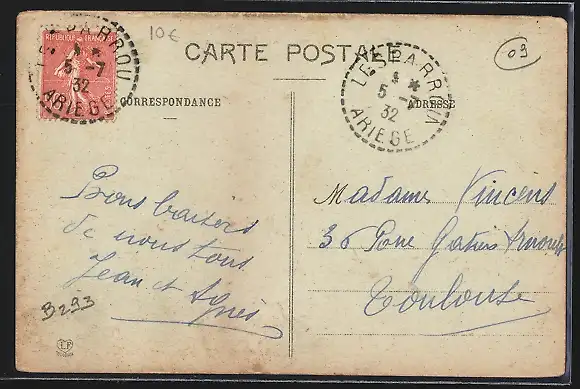 REPUBLIQUE FRANÇAISE
LESPARROU
5 -7
32
ARIEGE
10€
CARTE POSTALE
LESPARROU
5 -7
32
ARIEGE
09
CORRESPONDANCE
ADRESSE
Bons baisers
de nous tous
Jean et Agnès
B293
Madame Vincens
36 Rue Arnoult
Toulouse